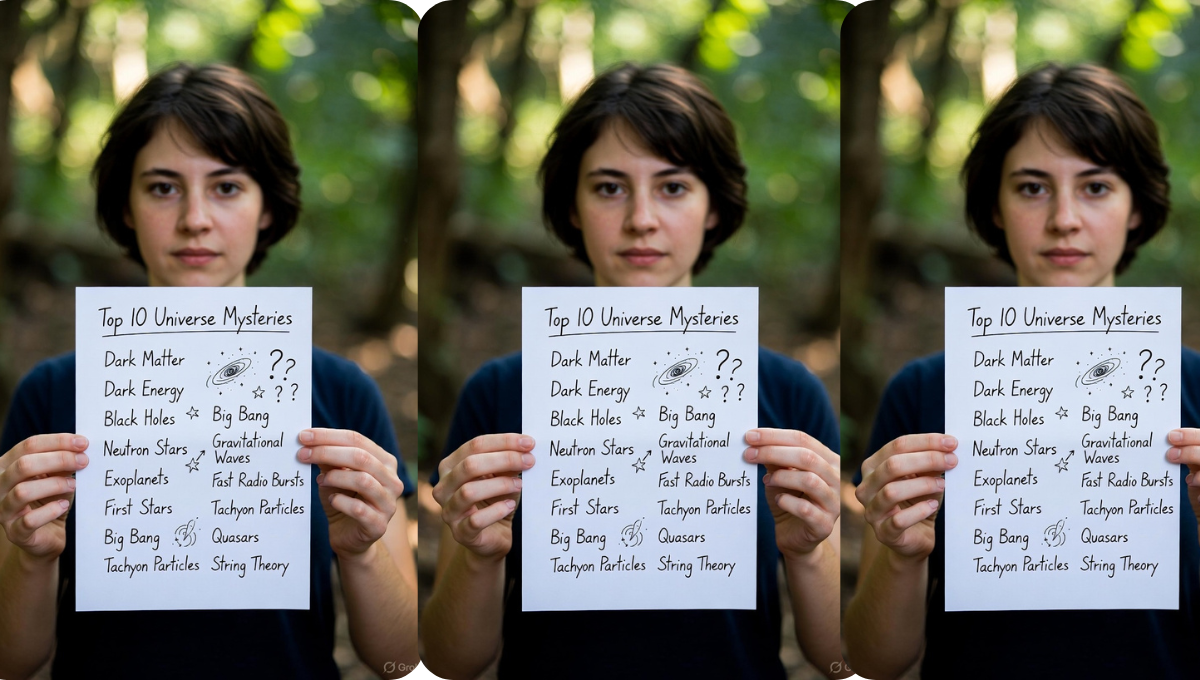 Top 10 Universe Mysteries
Dark Matter
Dark Energy
Black Holes
Neutron Stars
Exoplanets
First Stars
Big Bang
Tachyon Particles
? ?
? ?
Big Bang
Gravitational
Waves
Fast Radio Bursts
Tachyon Particles
Quasars
String Theory
Top 10 Universe Mysteries
Dark Matter
Dark Energy
Black Holes
Neutron Stars
Exoplanets
First Stars
Big Bang
Tachyon Particles
? ?
? ?
Big Bang
Gravitational
Waves
Fast Radio Bursts
Tachyon Particles
Quasars
String Theory
Top 10 Universe Mysteries
Dark Matter
Dark Energy
Black Holes
Neutron Stars
Exoplanets
First Stars
Big Bang
Tachyon Particles
? ?
? ?
Big Bang
Gravitational
Waves
Fast Radio Bursts
Tachyon Particles
Quasars
String Theory